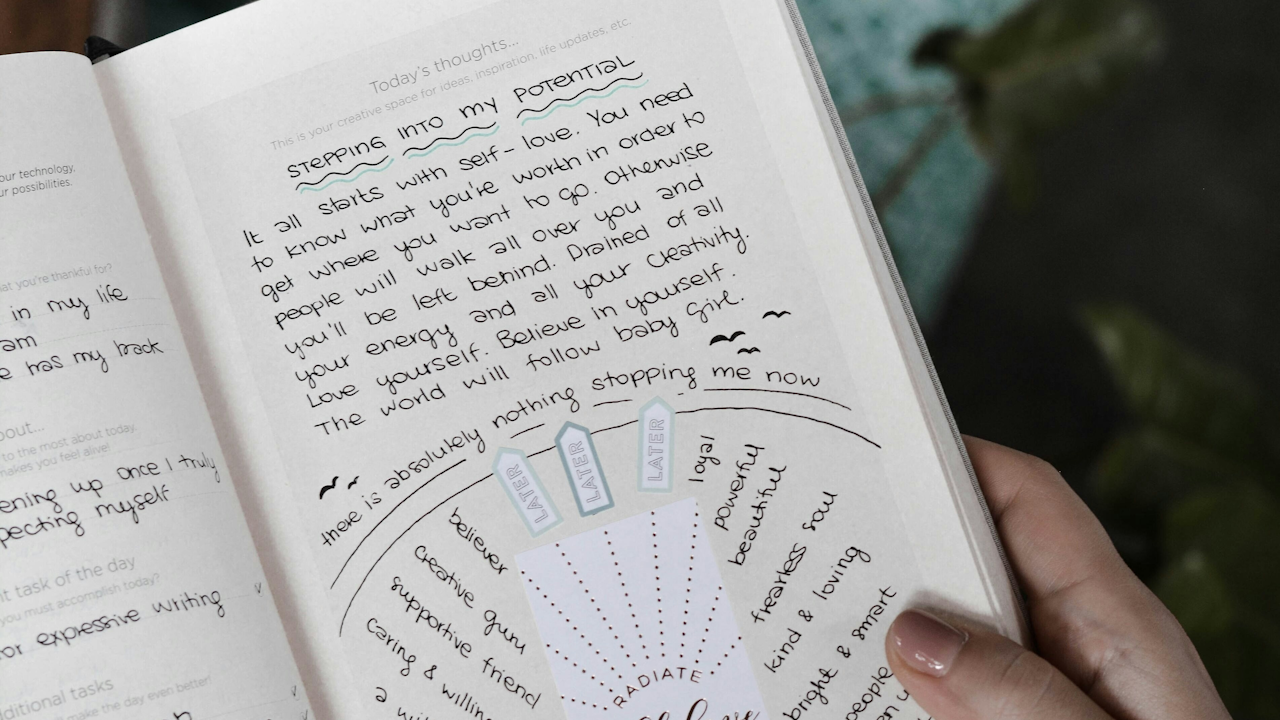 our technology,
ur possibilities.
at you're thankful for?
in my life
am
e has my back
bout...
to the most about today
akes you feel alive!
ening up once I truly
pecting myself
nt task of the day
you must accomplish today?
or expressive writing
ditional tasks
make the day even better!
Today's thoughts...
This is your creative space for ideas, inspiration, life updates, etc.
STEPPING INTO MY POTENTIAL
It all starts with self-love. You need
to know what you're worth in order to
get where you want to go. Otherwise
people will walk all over you and
you'll be left behind. Drained of all
your energy and all your creativity.
Love yourself. Believe in yourself.
The world will follow baby girl.
there is absolutely nothing stopping me now
LATER
LATER
LATER
believer
creative guru
supportive friend
caring & willing
a
loyal
powerful
beautiful
fearless soul
kind & loving
bright & smart
people
RADIATE